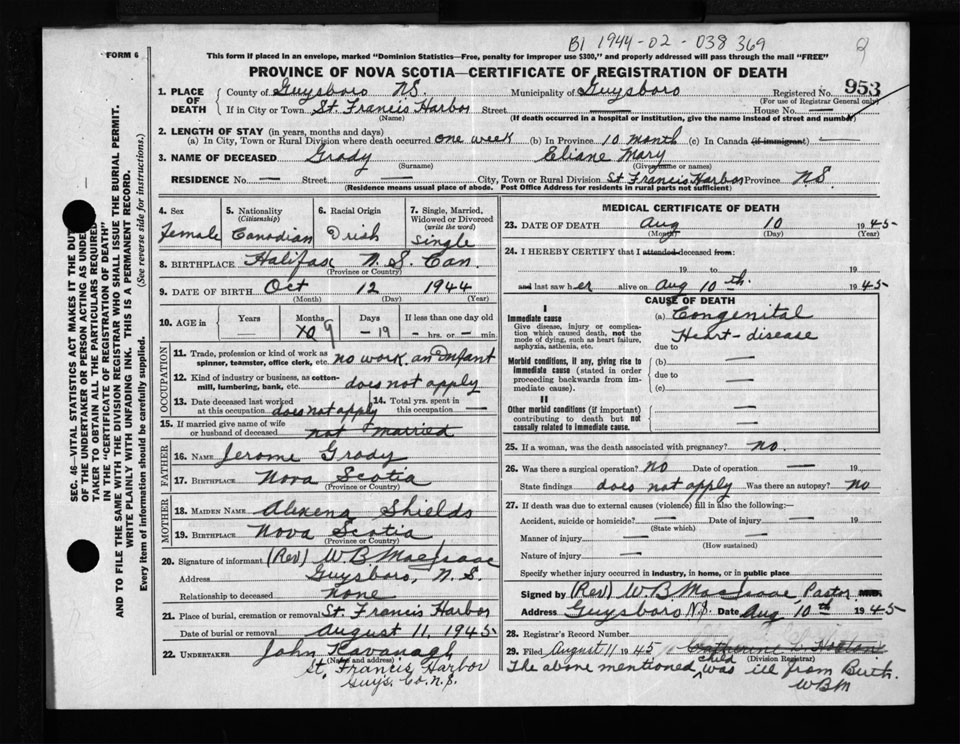 B1 1944-02-038369
2
FORM 6
This form if placed in an envelope, marked "Dominion Statistics—Free, penalty for improper use $300," and properly addressed will pass through the mail "FREE"
PROVINCE OF NOVA SCOTIA—CERTIFICATE OF REGISTRATION OF DEATH
1. PLACE OF DEATH County of Guysboro N.S. Municipality of Guysboro Registered No. 953
(For use of Registrar General only)
If in City or Town St. Francis Harbor Street — House No. —
(Name) (If death occurred in a hospital or institution, give the name instead of street and number)
2. LENGTH OF STAY (in years, months and days)
(a) In City, Town or Rural Division where death occurred one week (b) In Province 10 month (c) In Canada (if immigrant) —
3. NAME OF DECEASED Grady Eliane Mary
(Surname) (Given name or names)
RESIDENCE No. — Street — City, Town or Rural Division St Francis Harbor Province N.S.
(Residence means usual place of abode. Post Office Address for residents in rural parts not sufficient)
SEC. 46—VITAL STATISTICS ACT MAKES IT THE DUTY
OF THE UNDERTAKER OR PERSON ACTING AS UNDER
TAKER TO OBTAIN ALL THE PARTICULARS REQUIRED
IN THE "CERTIFICATE OF REGISTRATION OF DEATH"
AND TO FILE THE SAME WITH THE DIVISION REGISTRAR WHO SHALL ISSUE THE BURIAL PERMIT.
WRITE PLAINLY WITH UNFADING INK. THIS IS A PERMANENT RECORD.
Every item of information should be carefully supplied. (See reverse side for instructions.)
4. Sex 5. Nationality (Citizenship) 6. Racial Origin 7. Single, Married, Widowed or Divorced (write the word)
Female Canadian Irish Single
8. BIRTHPLACE Halifax N.S. Can.
(Province or Country)
9. DATE OF BIRTH Oct 12 1944
(Month) (Day) (Year)
10. AGE in Years Months Days If less than one day old
9 —19 — hrs. or — min.
OCCUPATION
11. Trade, profession or kind of work as spinner, teamster, office clerk, etc. no work, an Infant
12. Kind of industry or business, as cotton-mill, lumbering, bank, etc. does not apply
13. Date deceased last worked at this occupation does not apply 14. Total yrs. spent in this occupation —
15. If married give name of wife or husband of deceased not married
FATHER
16. NAME Jerome Grady
17. BIRTHPLACE Nova Scotia
(Province or Country)
MOTHER
18. MAIDEN NAME Alexena Shields
19. BIRTHPLACE Nova Scotia
(Province or Country)
20. Signature of informant (Rev) W. B MacIsaac
Address Guysboro, N.S.
Relationship to deceased None
21. Place of burial, cremation or removal St. Francis Harbor
Date of burial or removal August 11, 1945
22. UNDERTAKER John Kavanagh
(Name and address)
St. Francis Harbor
Guys. Co. N.S.
MEDICAL CERTIFICATE OF DEATH
23. DATE OF DEATH Aug 10 1945
(Month) (Day) (Year)
24. I HEREBY CERTIFY that I attended deceased from:
19 to 19
and last saw her alive on Aug 10th. 1945
CAUSE OF DEATH
I
Immediate cause (a) Congenital
Give disease, injury or complication which caused death, not the mode of dying, such as heart failure, asphyxia, asthenia, etc. Heart-disease
due to
Morbid conditions, if any, giving rise to immediate cause (stated in order proceeding backwards from immediate cause). (b) —
due to —
(c)
II
Other morbid conditions (if important) contributing to death but not causally related to immediate cause. —
25. If a woman, was the death associated with pregnancy? no.
26. Was there a surgical operation? NO Date of operation —
State findings does not apply Was there an autopsy? No
27. If death was due to external causes (violence) fill in also the following:—
Accident, suicide or homicide? — Date of injury — 19
(State which)
Manner of injury — —
(How sustained)
Nature of injury —
Specify whether injury occurred in industry, in home, or in public place
Signed by (Rev) W.B MacIsaac Pastor M.D.
Address Guysboro N.S. Date Aug 10th 1945
28. Registrar's Record Number
29. Filed August 11 1945
(Division Registrar)
The above mentioned child was ill from Birth.
WBM